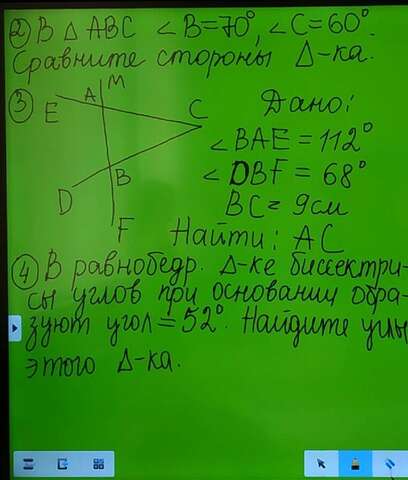 ② В △ АВС ∠В=70°, ∠С=60°.
Сравните стороны △-ка.
③
M
E
A
C
B
D
F
Дано:
∠BAE = 112°
∠DBF = 68°
BC = 9см
Найти: АС
④ В равнобедр. △-ке биссектри-
сы углов при основании обра-
зуют угол = 52°. Найдите углы
этого △-ка.